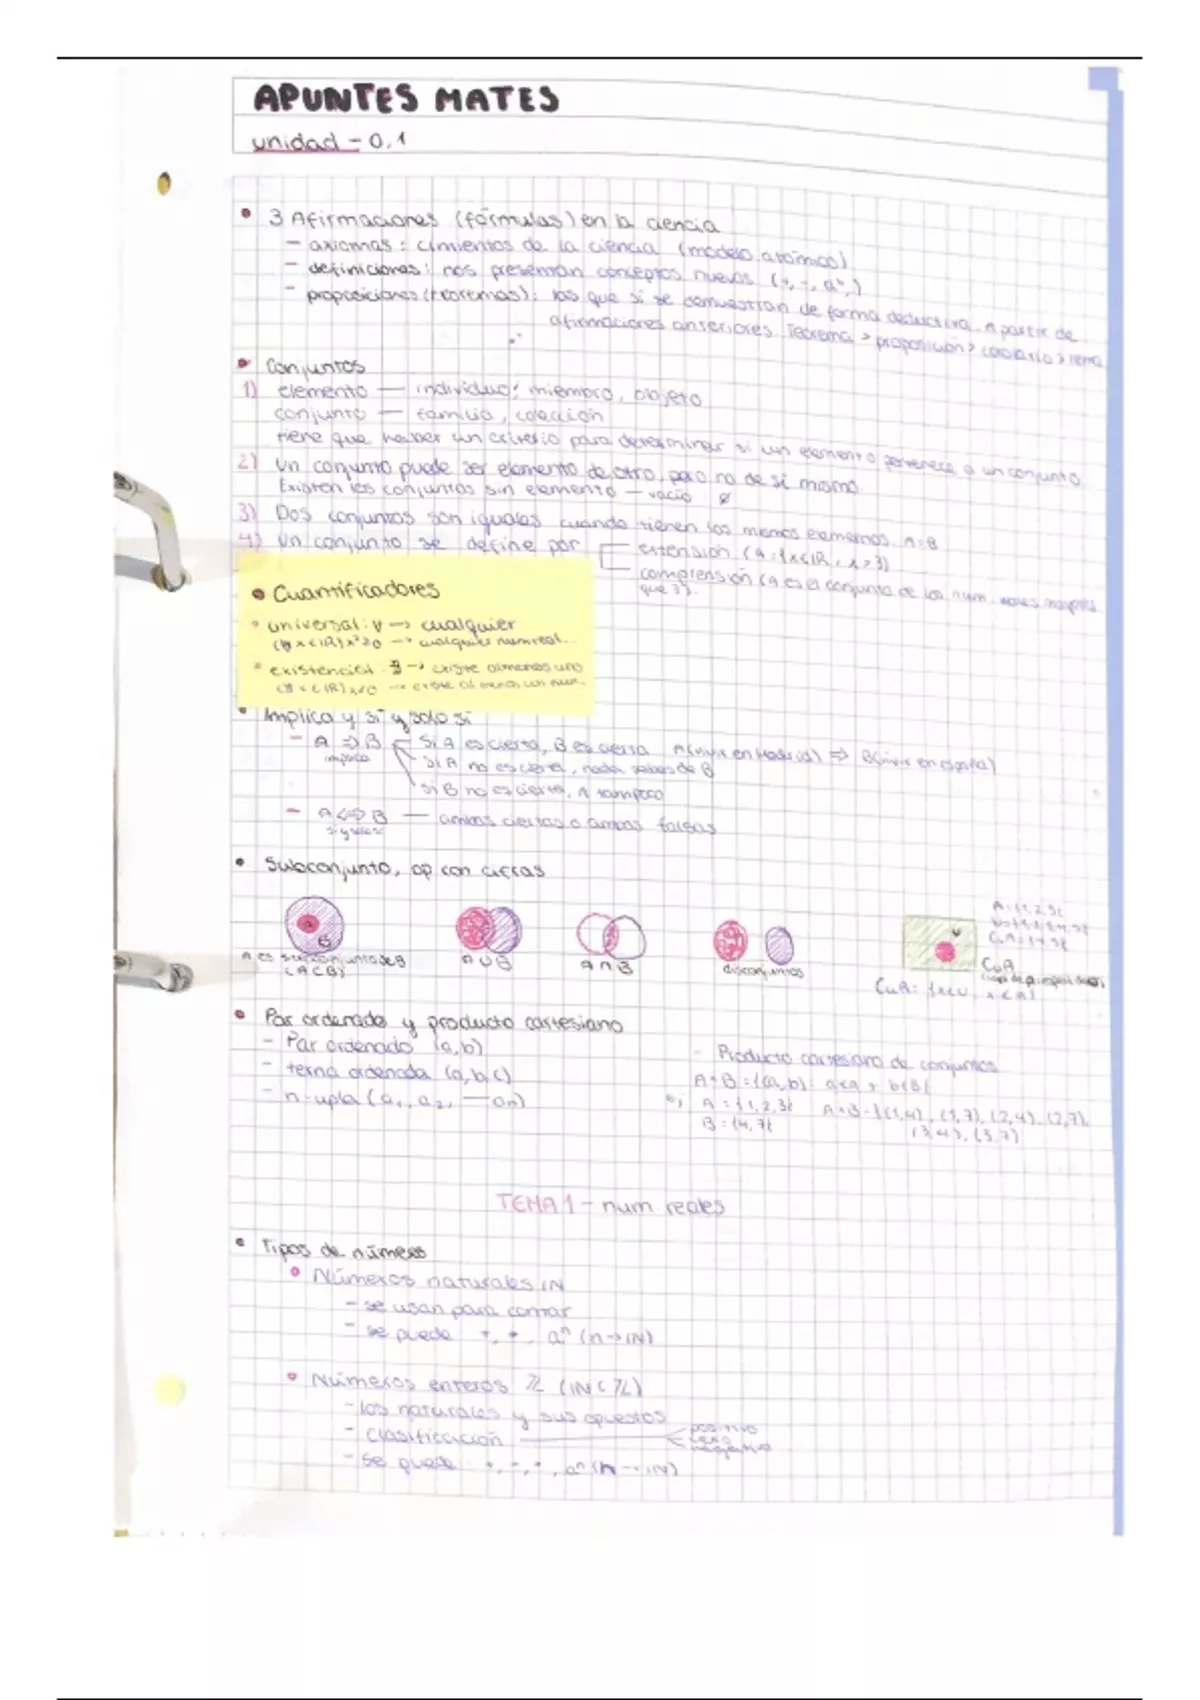 APUNTES MATES
unidad - 0.1
• 3 Afirmaciones (fórmulas) en la ciencia
- axiomas: cimientos de la ciencia (modelo atómico)
- definiciones: nos presentan conceptos nuevos
- proposiciones (teoremas): las que sí se demuestran de forma deductiva, a partir de
afirmaciones anteriores. Teorema > proposición > corolario > lema
• Conjuntos
1) elemento — individuo, miembro, objeto
conjunto — familia, colección
tiene que haber un criterio para determinar si un elemento pertenece a un conjunto
2) Un conjunto puede ser elemento de otro, pero no de sí mismo
Existen los conjuntos sin elemento — vacío ∅
3) Dos conjuntos son iguales cuando tienen los mismos elementos. A=B
4) Un conjunto se define por
extensión (A={x∈IR, x>3)
comprensión (A es el conjunto de los num. reales mayores
que 3).
• Cuantificadores
• universal: ∀ → cualquier
(∀x∈IR) x²≥0 → cualquier num real.
• existencial: ∃ → existe al menos uno
x<0 → existe al menos un num.
• Implica y si y solo si
- A ⇒ B
implica
Si A es cierta, B es cierta A(vivir en Madrid) ⇒ B(vivir en españa)
si A no es cierta, nada sabes de B
si B no es cierta, A tampoco
- A⇔B — ambas ciertas o ambas falsas
• Subconjunto, op con
A
B
A es subconjunto de B
(A⊂B)
A∪B
A∩B
disconjuntos
A={1,2,3}
U
CuA
CuA= {x∈U, x∉A}
• Par ordenado y producto cartesiano
- Par ordenado (a,b)
- terna ordenada (a,b,c)
- n-upla (a₁, a₂, — an)
- Producto cartesiano de conjuntos
A×B={(a,b): a∈A y b∈B}
ej A={1,2,3} A×B={(1,4), (1,7), (2,4), (2,7),
B={4,7} (3,4), (3,7)
TEMA 1 - num. reales
• Tipos de números
• Números naturales IN
- se usan para contar
- se puede: +, ·, aⁿ (n→IN)
• Números enteros ℤ (IN⊂ℤ)
- los naturales y sus opuestos
- clasificación
positivo
cero
negativo
- se puede: +, -, ·, aⁿ (n→IN)